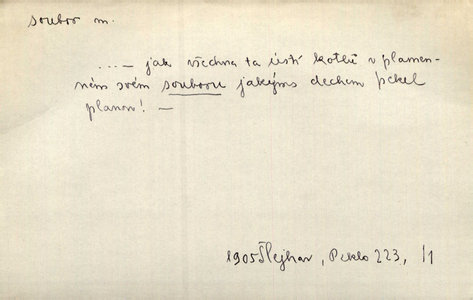 soubor m.
... — jak všechna ta ústí kotlů v plamen-
ném svém souboru jakýms dechem pekel
planou! —
1905 Šlejhar, Peklo 223, /1